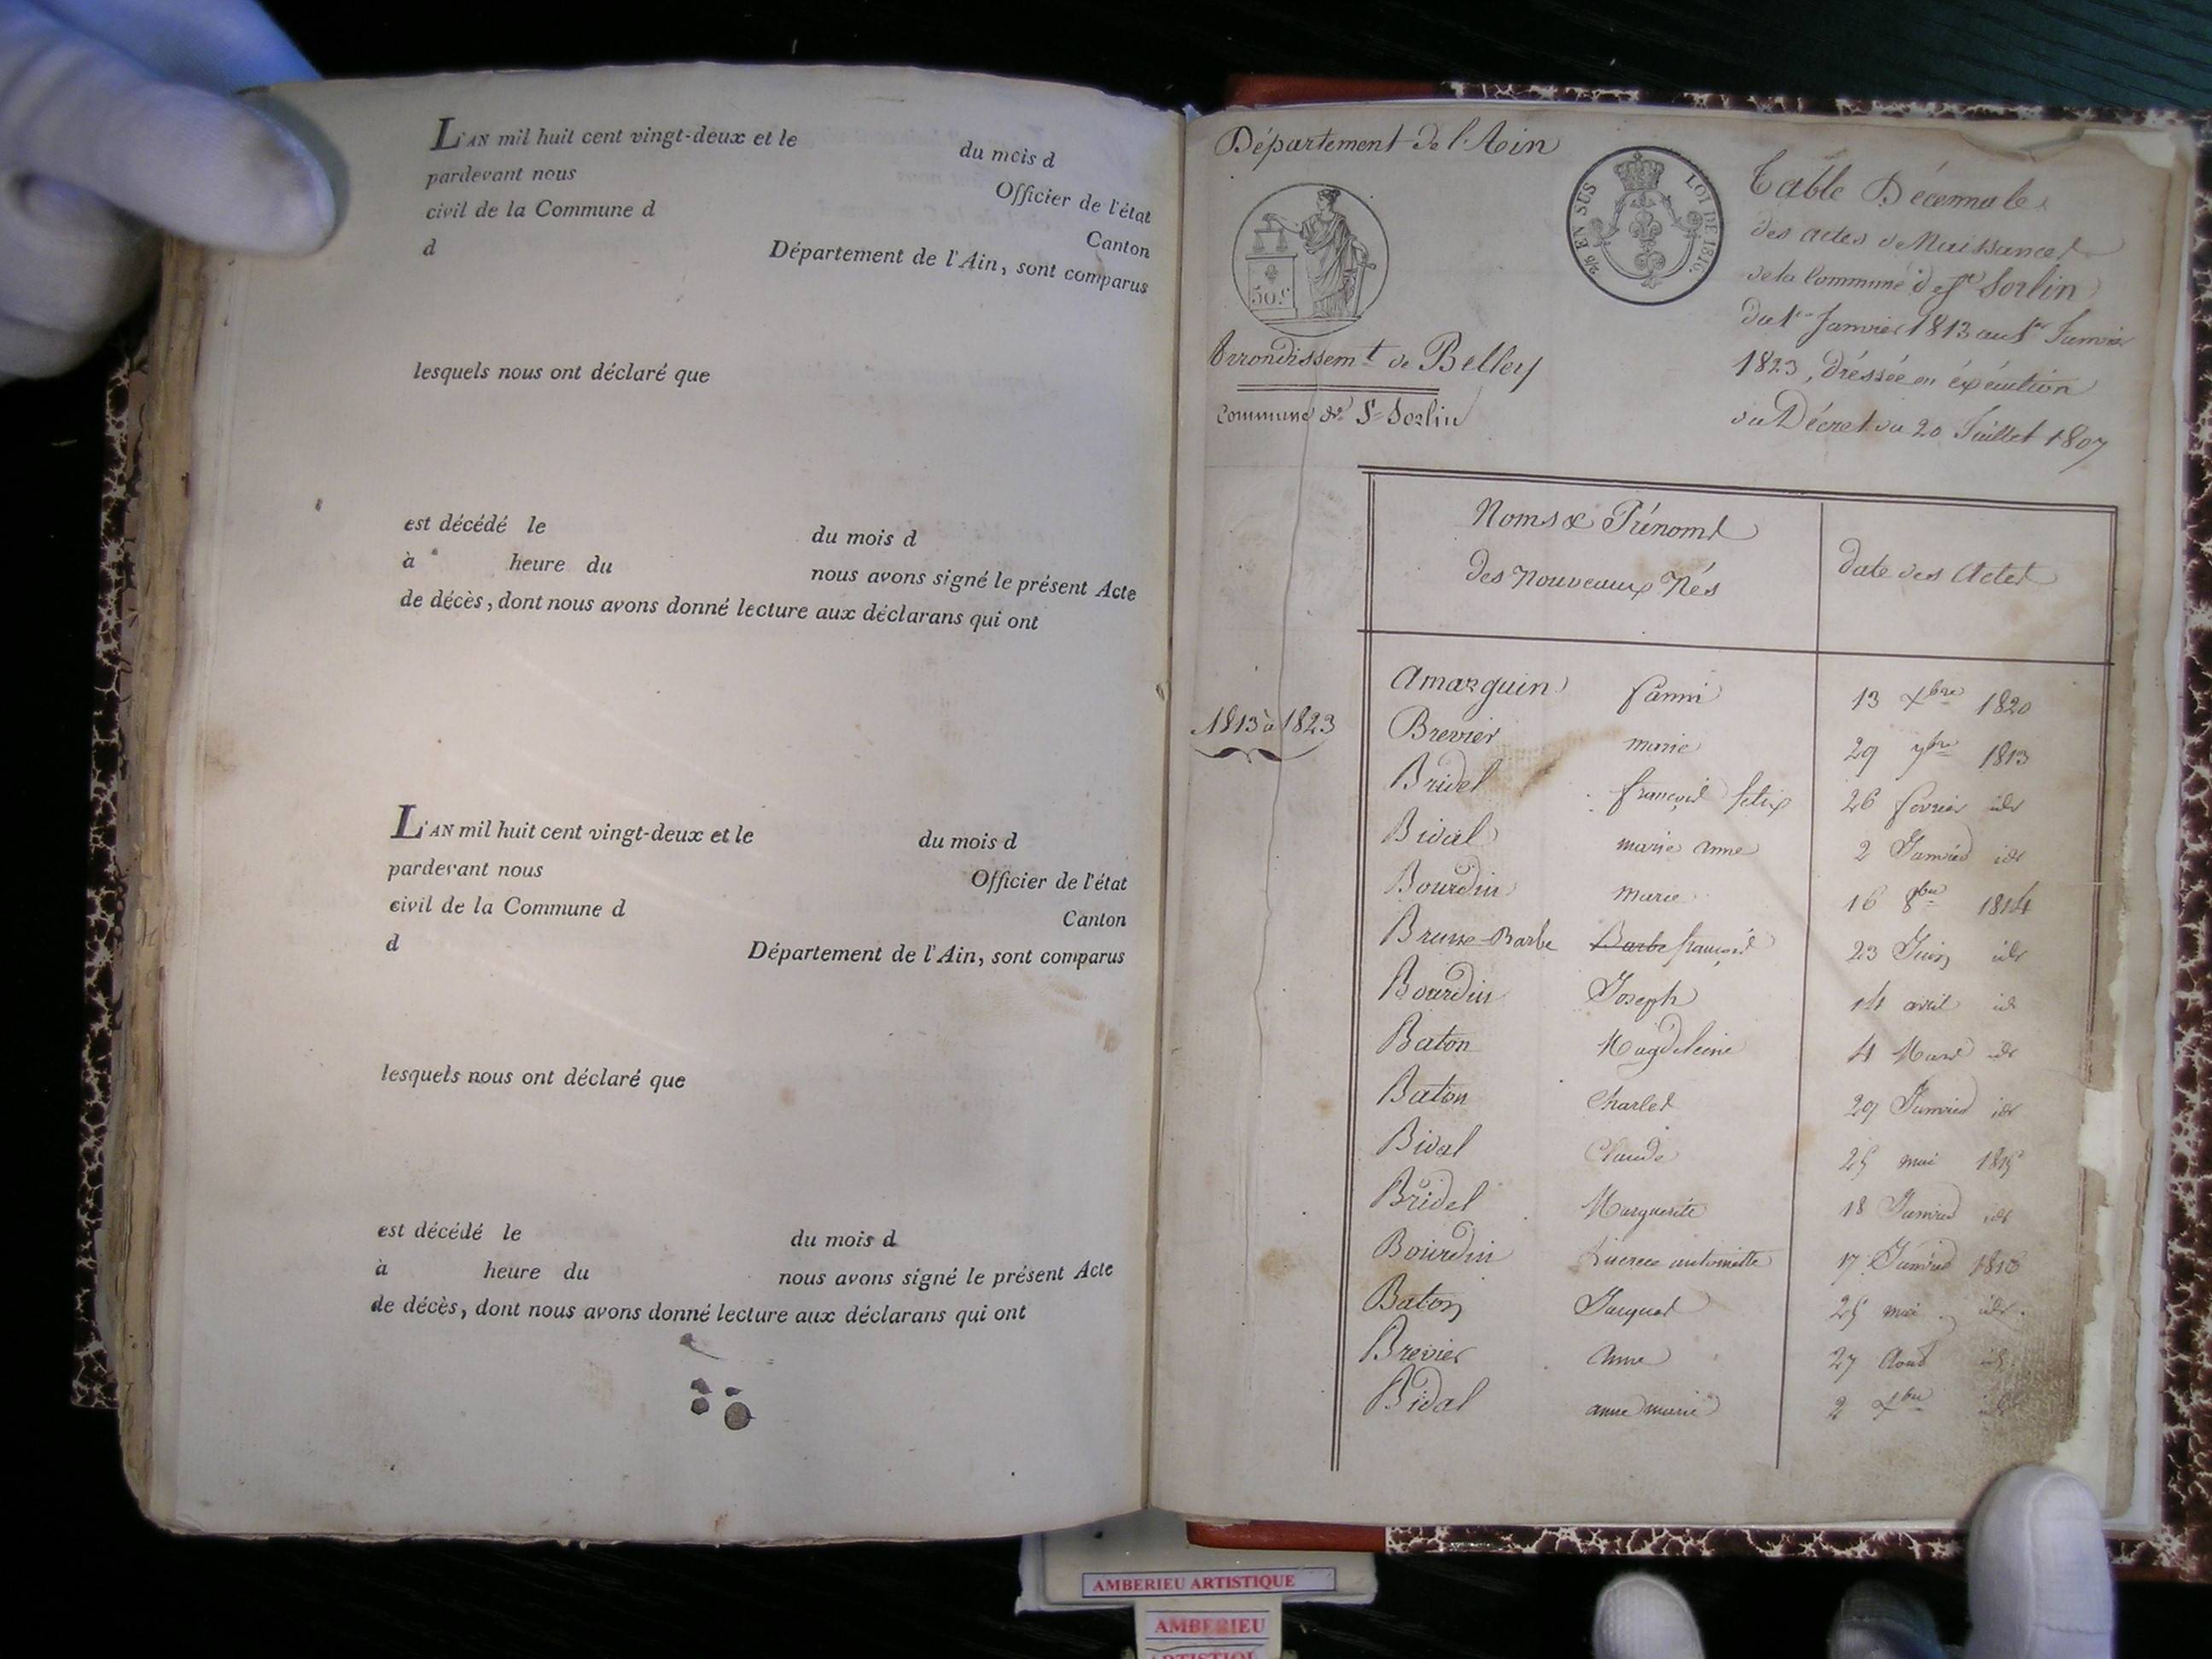 L'AN mil huit cent vingt-deux et le du mois d
pardevant nous Officier de l'état
civil de la Commune d Canton
d Département de l'Ain, sont comparus
lesquels nous ont déclaré que
est décédé le du mois d
à heure du nous avons signé le présent Acte
de décès, dont nous avons donné lecture aux déclarans qui ont
L'AN mil huit cent vingt-deux et le du mois d
pardevant nous Officier de l'état
civil de la Commune d Canton
d Département de l'Ain, sont comparus
lesquels nous ont déclaré que
est décédé le du mois d
à heure du nous avons signé le présent Acte
de décès, dont nous avons donné lecture aux déclarans qui ont
Département de l'Ain
50 c
EN SUS LOI DE 1816.
Arrondissemt de Belley
Commune de St Sorlin
Table Décennale
des actes de Naissances
de la Commune de St Sorlin
du 1er Janvier 1813 au 1er Janvier
1823, dréssée en éxécution
du Décret du 20 Juillet 1807
1813 à 1823
Noms & Prénoms
des Nouveaux Nés
date des Actes
Amarguin fanni 13 xbre 1820
Brevier marie 29 7bre 1813
Bridel françois felix 26 fevrier idr
Bidal marie anne 2 Janvier idr
Bourdin marie 16 8bre 1814
Brune-Barbe Barbe françois 23 Juin idr
Bourdin Joseph 14 avril id
Baton Magdeleine 4 Mars idr
Baton Charles 29 Janvier idr
Bidal Claude 25 mai 1815
Bridel Marguerite 18 Janvier idr
Bourdin Lucrece antoinette 17 Janvier 1816
Baton Jacques 25 mai idr.
Brevier Anne 27 Aout id
Bidal anne marie 2 xbre idr
AMBERIEU ARTISTIQUE
AMBERIEU
ARTISTIQUE